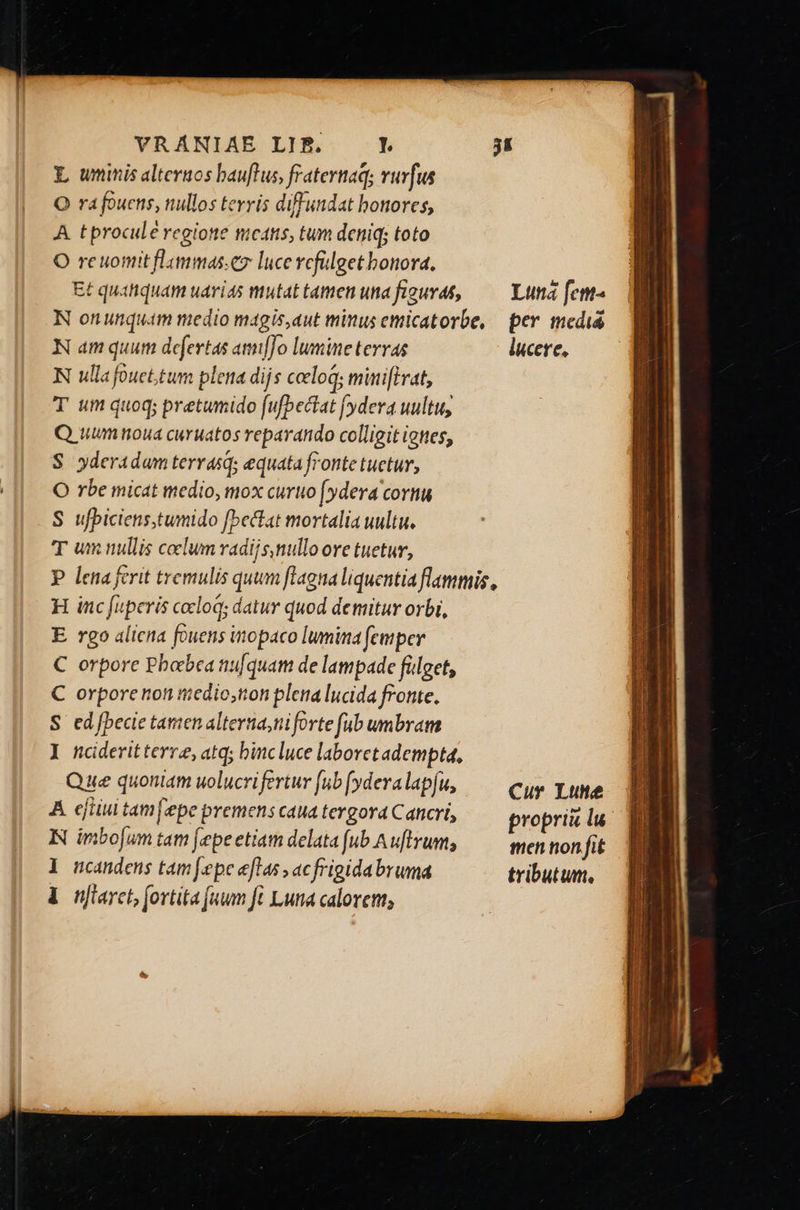 VRANIAE LIB. I. 31
L uminis alternos haustus, fraternaq; rursus
O ra fouens, nullos terris diffundat honores,
A t procul è regione means, tum deniq; toto
O re uomit flammas, & luce refulget honora.
Et quanquam uarias mutat tamen una figuras,
N on unquam medio magis, aut minus emicat orbe,
N am quum desertas amisso lumine terras
N ulla fouet, tum plena dijs cœloq; ministrat,
T um quoq; prætumido suspectat sydera uultu,
Q uum noua curuatos reparando colligit ignes,
S ydera dum terrasq; æquata fronte tuetur,
O rbe micat medio, mox curuo sydera cornu
S uspiciens, tumido spectat mortalia uultu.
T um nullis cœlum radijs, nullo ore tuetur,
P lena ferit tremulis quum stagna liquentia flammis,
H inc superis cœloq; datur quod demitur orbi,
E rgo aliena fouens inopaco lumina semper
C orpore Phœbea nusquam de lampade fulget,
C orpore non medio, non plena lucida fronte.
S ed specie tamen alterna, ni forte sub umbram
I nciderit terræ, atq; hinc luce laboret adempta,
Quæ quoniam uolucri fertur sub sydera lapsu,
A estiui tam sæpe premens caua tergora Cancri,
N imbosum tam sæpe etiam delata sub Austrum,
I ncandens tam sæpe æstas, ac frigida bruma
I nstaret, sortita suum si Luna calorem,
Lunã sem-
per mediã
lucere.
Cur Lunæ
propriũ lu
men non sit
tributum.